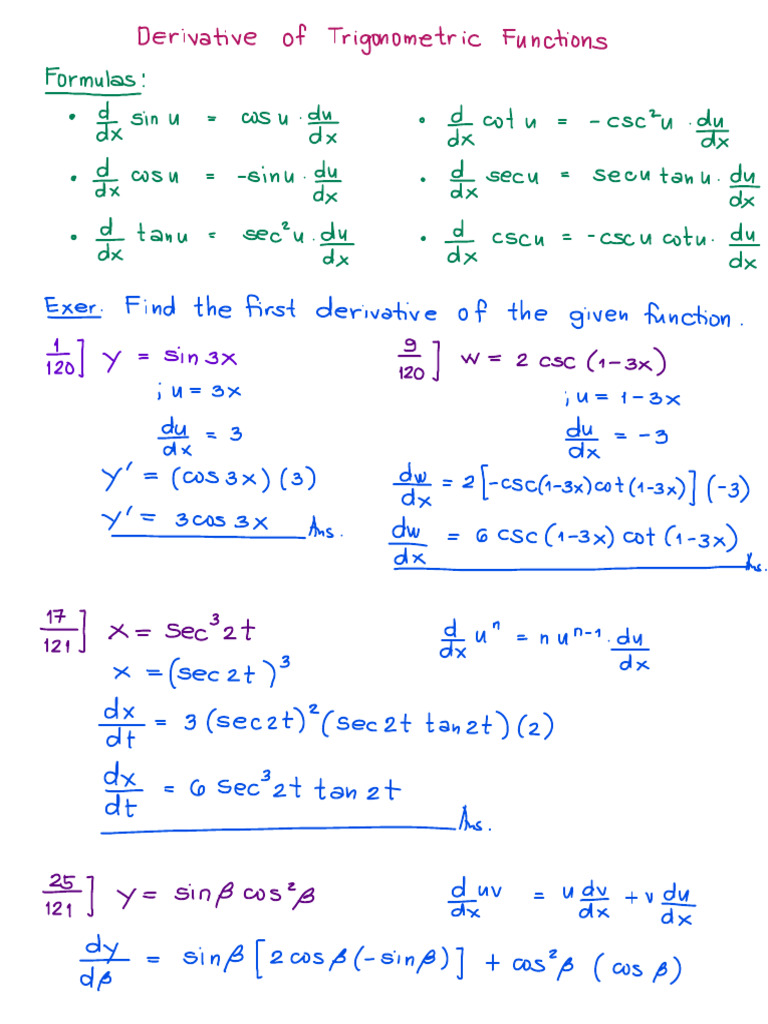 Derivative of Trigonometric Functions
Formulas:
• d/dx sin u = cos u · du/dx
• d/dx cos u = -sin u · du/dx
• d/dx tan u = sec²u · du/dx
• d/dx cot u = -csc²u · du/dx
• d/dx sec u = sec u tan u · du/dx
• d/dx csc u = -csc u cot u · du/dx
Exer. Find the first derivative of the given function.
1/120] y = sin 3x
; u = 3x
du/dx = 3
y' = (cos 3x)(3)
y' = 3cos 3x Ans.
9/120] w = 2 csc (1-3x)
; u = 1-3x
du/dx = -3
dw/dx = 2[-csc(1-3x)cot(1-3x)](-3)
dw/dx = 6 csc(1-3x) cot(1-3x)
Ans.
17/121] x = sec³2t
d/dx uⁿ = n uⁿ⁻¹ · du/dx
x = (sec 2t)³
dx/dt = 3(sec2t)²(sec2t tan2t)(2)
dx/dt = 6 sec³2t tan 2t
Ans.
25/121] y = sinβ cos²β
d/dx uv = u dv/dx + v du/dx
dy/dβ = sinβ[2cosβ(-sinβ)] + cos²β (cosβ)